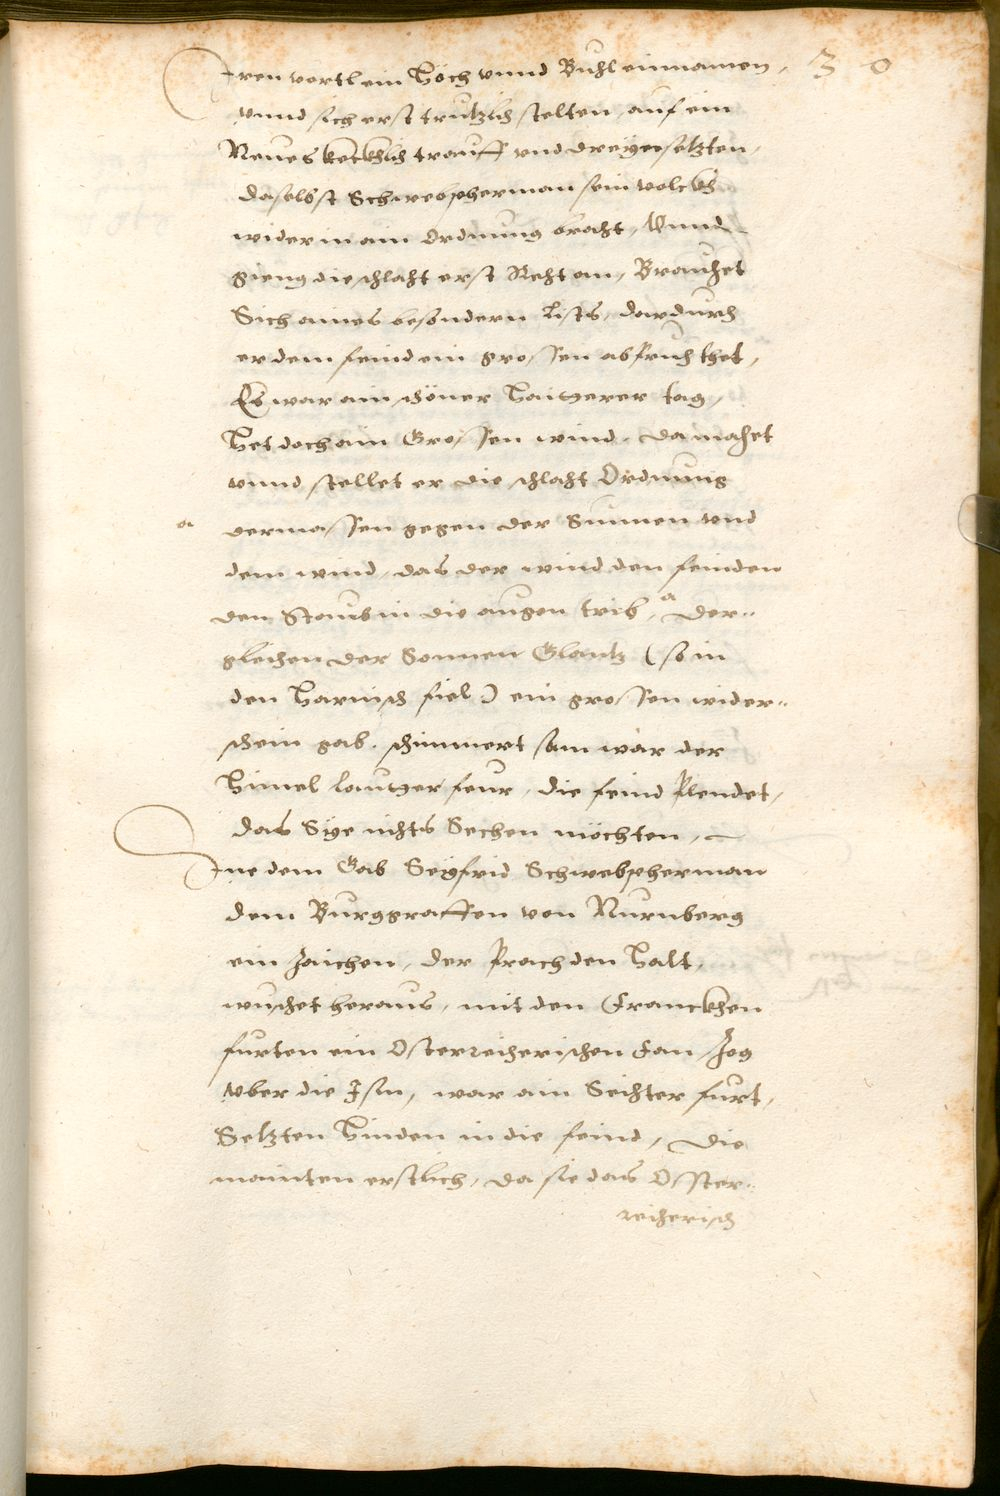 Iren vortl ein Höch vnnd Buhl einnamen, 30
vnnd sich erst trutzlich stelten, auf ein
Neues kecklich trauff vnd dreÿn setzten,
daselbst Schwepherman sein volckh
wider in ain Ordnung bracht, Vnnd
gieng die schlaht erst Reht an, Brauchet
Sich aines besondern lists, dardurch
er dem feind ein grossen abbruch thet,
Es war ain schöner haitgerer tag,
Het doch ain Grossen wind, da machet
vnnd stellet er die schlaht Ordnung
a dermassen gegen der Sunnen vnd
dem wind, das der wind den feinden
den Staub in die augen trib, a Der-
gleichen der Sonnen Glantz (so in
den Harnisch fiel) ein grossen wider-
schein gab, schimmert sam wär der
Himel lautter feur, die feind plendet,
das Sÿe nichts Sechen möchten,
Inne dem Gab Seÿfrid Schwepherman
dem Burggraffen von Nurnberg
ein zaichen, der prach den Halt,
wuschet heraus, mit den Franckhen
furten ein Osterreicherischen Fan, zog
vber die Isin, war ain Seichter furt,
Setzten Hinden in die feind, die
mainten erstlich, da sie das Osster-
reicherisch